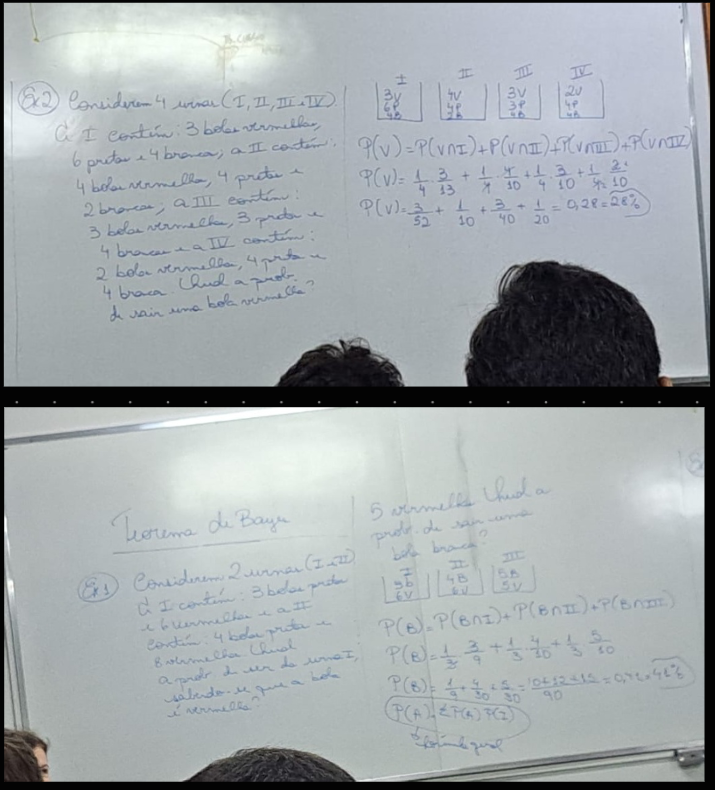 Ex2) Considerem 4 urnas (I, II, III e IV)
A I contém: 3 bolas vermelhas,
6 pretas e 4 branca; a II contém:
4 bolas vermelha, 4 pretas e
2 brancas; a III contém:
3 bolas vermelha, 3 preta e
4 brancas e a IV contém:
2 bolas vermelha, 4 preta e
4 branca. Qual a prob.
de sair uma bola vermelha?
I II III IV
3V 4V 3V 2V
6P 4P 3P 4P
4B 2B 4B 4B
P(V) = P(V∩I) + P(V∩II) + P(V∩III) + P(V∩IV)
P(V) = 1/4 . 3/13 + 1/4 . 4/10 + 1/4 . 3/10 + 1/4 . 2/10
P(V) = 3/52 + 1/10 + 3/40 + 1/20 = 0,28 = 28%
Teorema de Bayes
Ex1) Considerem 2 urnas (I e II)
A I contém: 3 bolas preta
e 6 vermelha e a II
contém: 4 bolas preta e
8 vermelha Qual
a prob. de ser da urna I,
sabendo-se que a bola
é vermelha?
5 vermelha Qual a
prob. de sair uma
bola branca?
I II III
3B 4B 5B
6V 6V 5V
P(B) = P(B∩I) + P(B∩II) + P(B∩III)
P(B) = 1/3 . 3/9 + 1/3 . 4/10 + 1/3 . 5/10
P(B) = 1/9 + 4/30 + 5/30 = = 41%
90